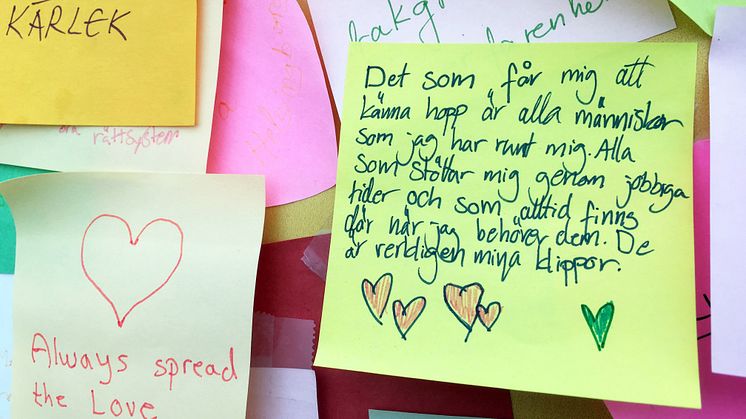 KÄRLEK
rättsystem
Det som får mig att
känna hopp är alla människor
som jag har runt mig. Alla
som stöttar mig genom jobbiga
tider och som alltid finns
där när jag behöver dem. De
är verkligen mina klippor.
Always spread
the Love